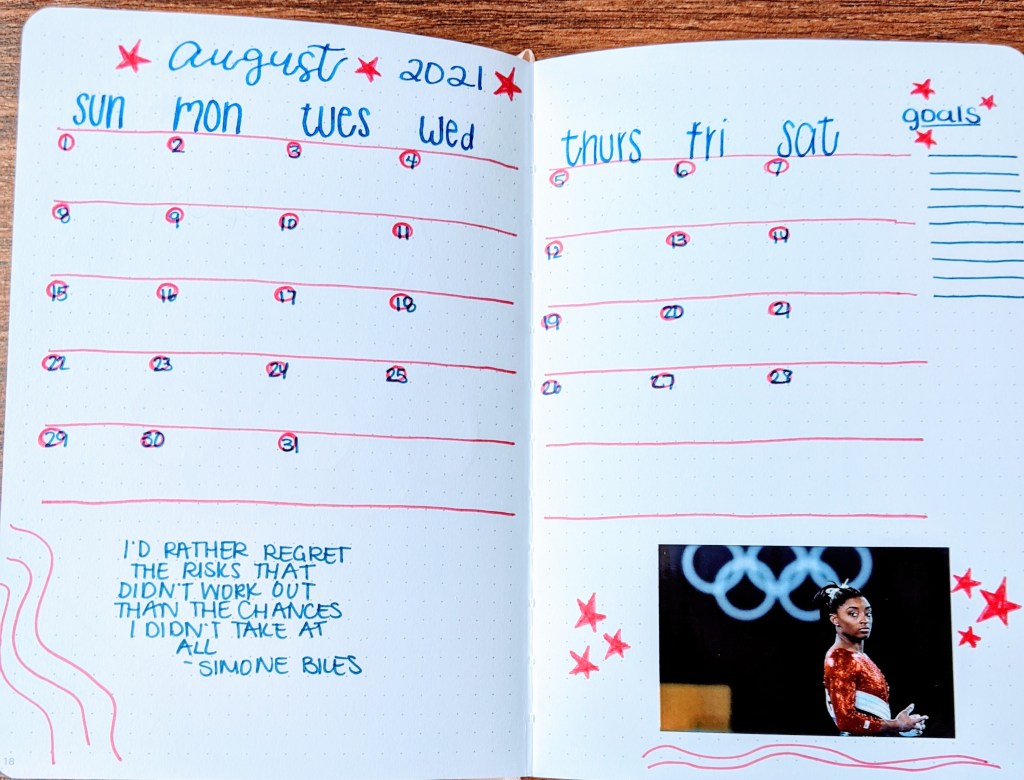 august 2021
sun mon tues wed
1 2 3 4
8 9 10 11
15 16 17 18
22 23 24 25
29 30 31
I'D RATHER REGRET
THE RISKS THAT
DIDN'T WORK OUT
THAN THE CHANCES
I DIDN'T TAKE AT
ALL
- SIMONE BILES
18
thurs fri sat
5 6 7
12 13 14
19 20 21
26 27 28
goals